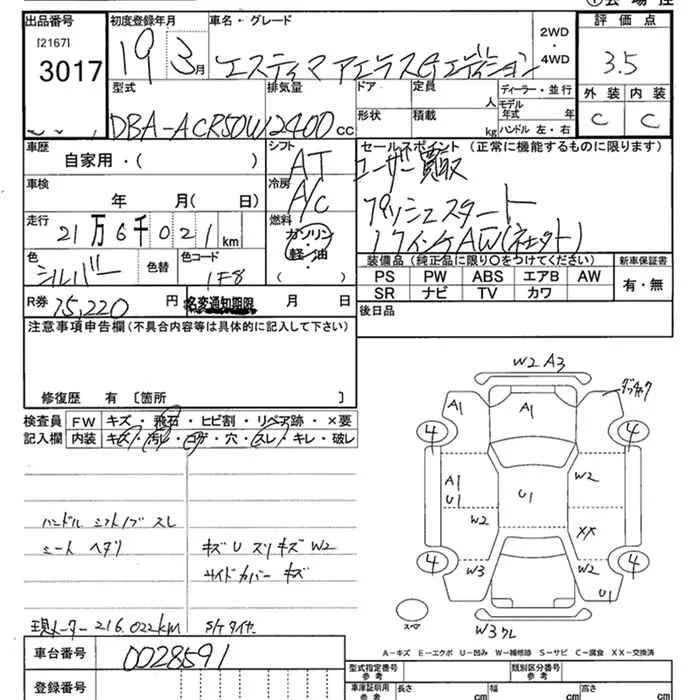 出品番号
[2167]
3017
初度登録年月
19 3月
車名・グレード
エスティマ アエラス Gエディション
2WD
・
4WD
評価点
3.5
外装 内装
C C
型式
DBA-ACR50W
排気量
2400 cc
ドア 定員 人
形状 積載 kg
ディーラー・並行
モデル年式 年
ハンドル 左・右
車歴
自家用・( )
シフト
AT
セールスポイント (正常に機能するものに限ります)
ユーザー買取
プッシュスタート
17インチAW
車検
年 月( 日)
冷房
A/C
走行
21万6千021km
燃料
ガソリン
軽・油
( )
色
シルバー
色替
色コード
1F8
装備品(純正品に限り○をつけてください)
PS PW ABS エアB AW
SR ナビ TV カワ
新車保証書
有・無
R券 15,220円
名変通知期限 月 日
後日品
注意事項申告欄(不具合内容等は具体的に記入して下さい)
修復歴 有 〔箇所 〕
検査員記入欄
FW キズ・飛石・ヒビ割・リペア跡・×要
内装 キズ・汚レ・コゲ・穴・スレ・キレ・破レ
ハンドル シフトノブ スレ
シート ヘタリ
キズ U スリキズ W2
サイドカバー キズ
現メーター 216.022KM
S/Tタイヤ
W2 A3
A1
A1
4
4
A1
U1
U1
W2
W2
XX
W3
W2
4
4
U1
スペア
W3クレ
A-キズ E-エクボ U-凹み W-補修跡 S-サビ C-腐食 XX-交換済
車台番号
0028591
登録番号
型式指定番号
参考
類別区分番号
参考
車庫証明用
参考
長さ cm
幅 cm
高さ cm